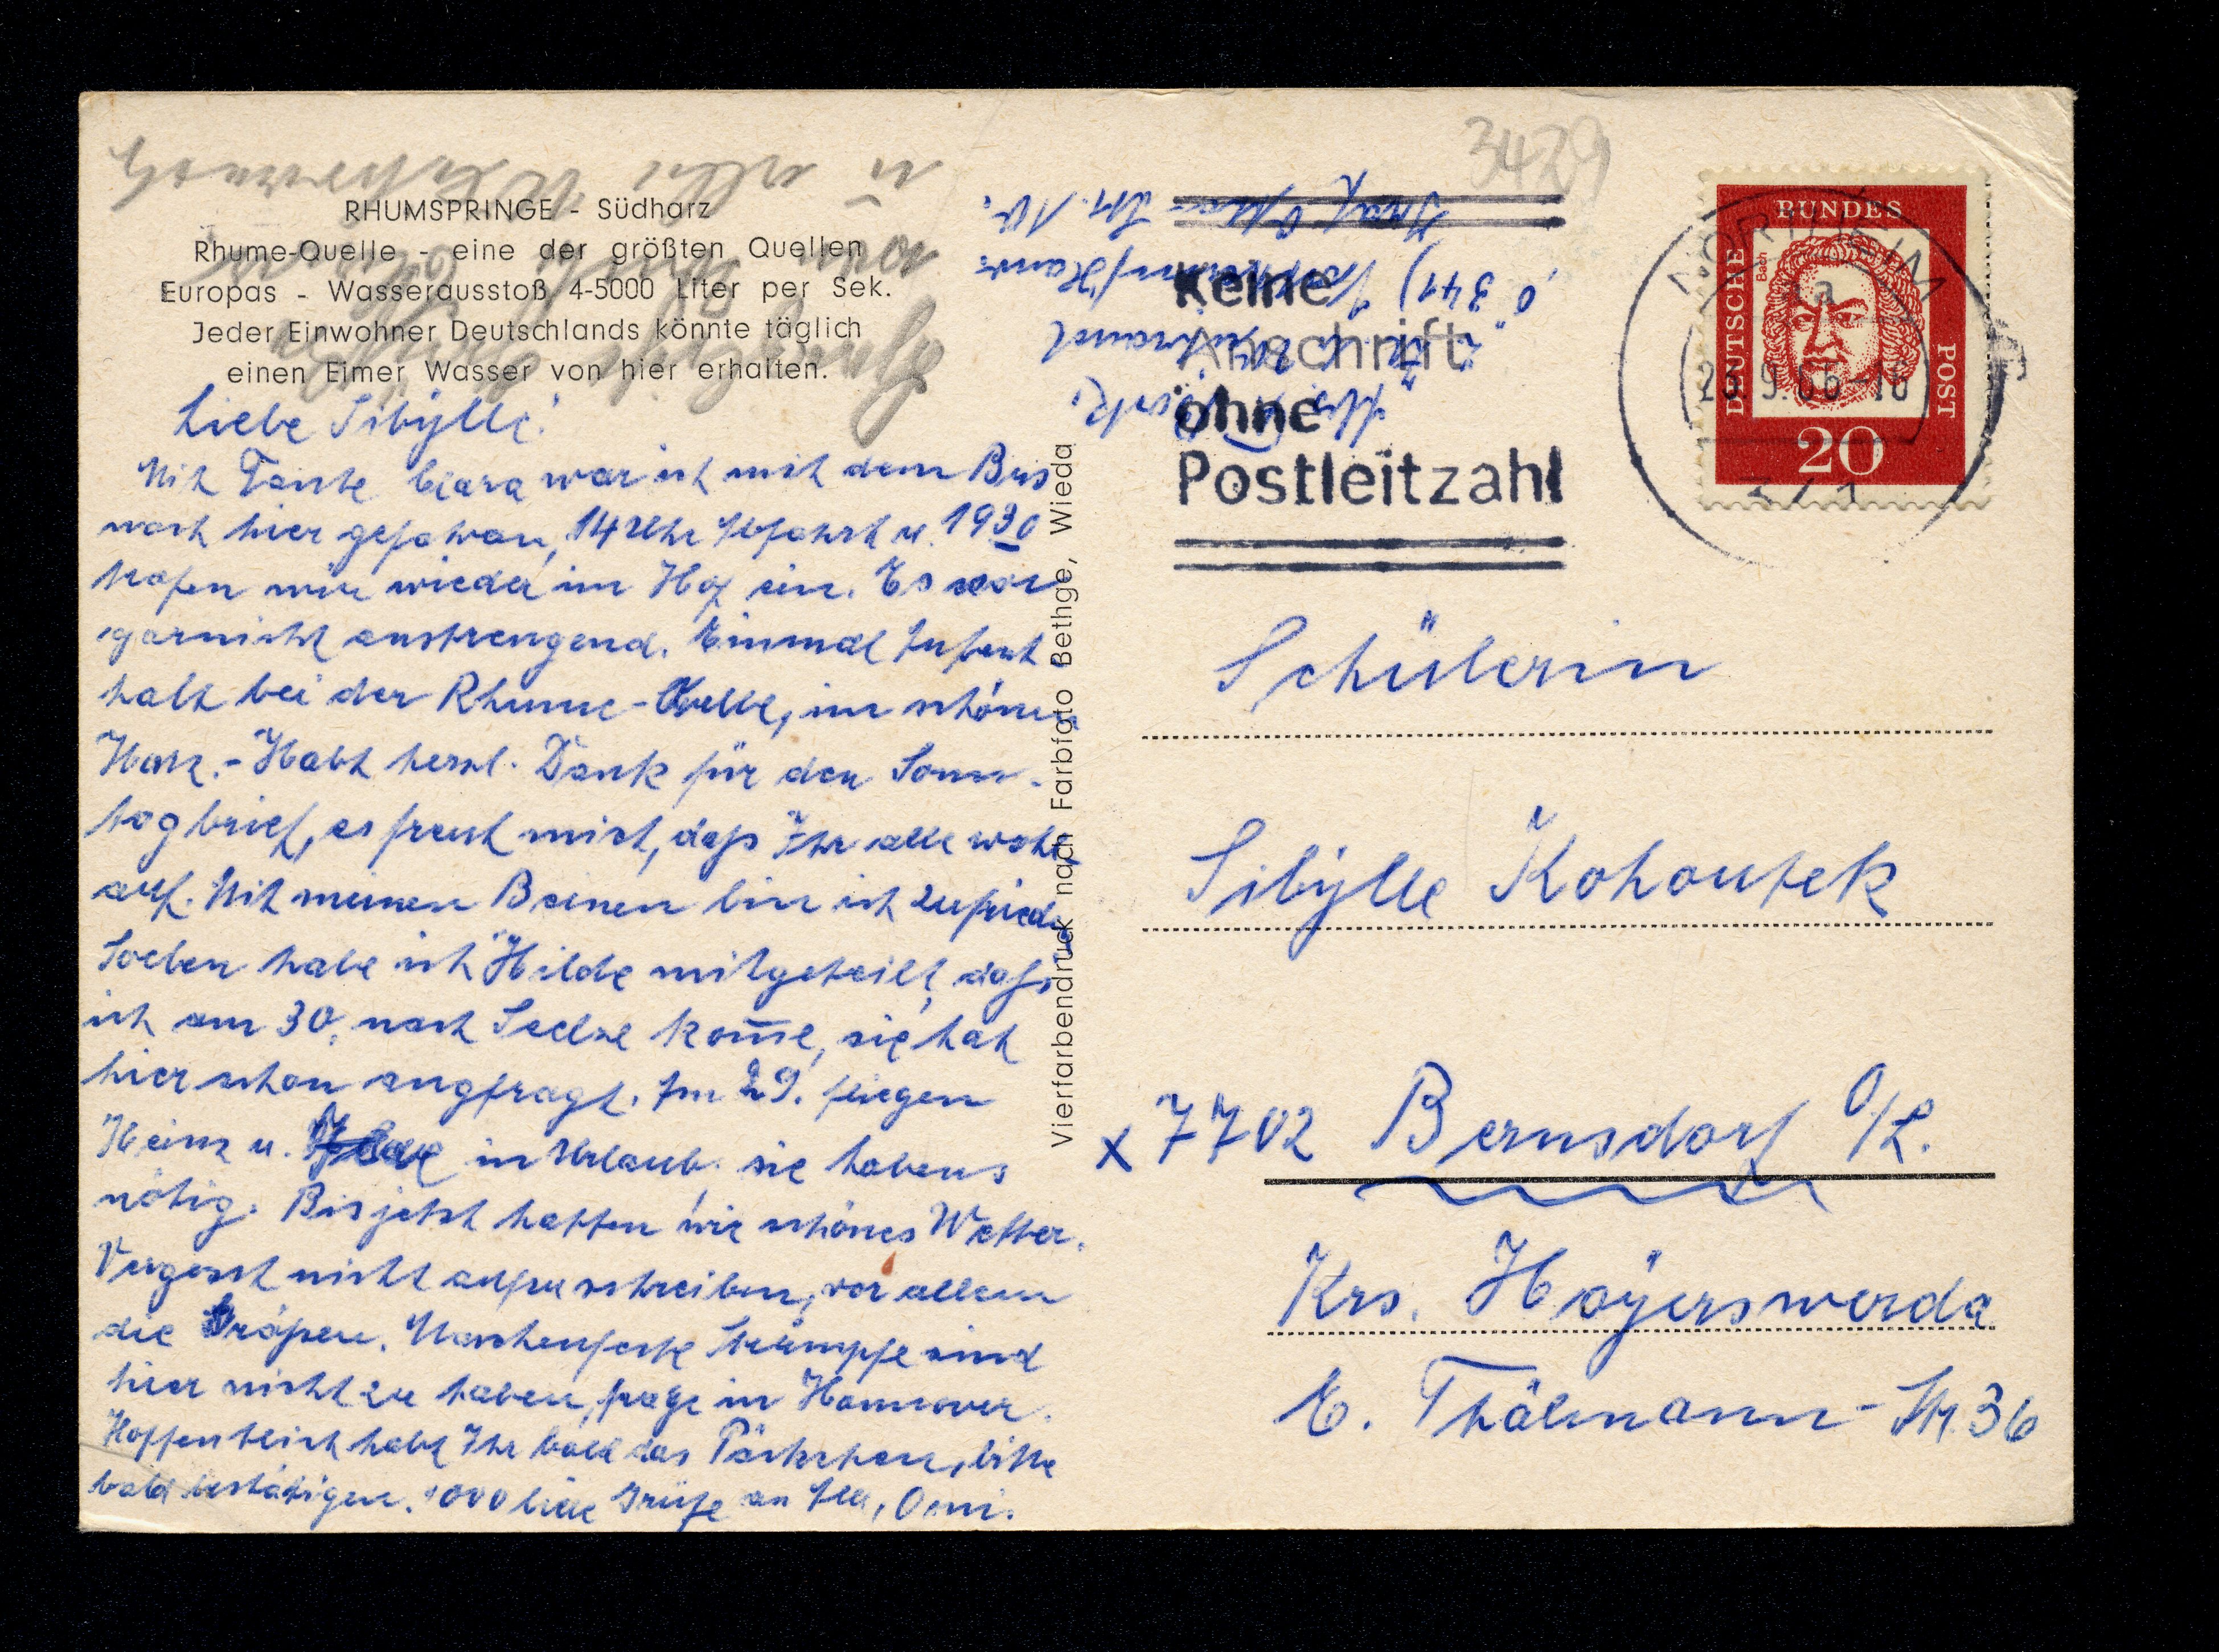 3429
RHUMSPRINGE - Südharz
Rhume-Quelle - eine der größten Quellen
Europas - Wasserausstoß 4-5000 Liter per Sek.
Jeder Einwohner Deutschlands könnte täglich
einen Eimer Wasser von hier erhalten.
Liebe Sibylle!
Mit Tante Clara war ich mit dem Bus
nach hier gefahren, 14 Uhr Abfahrt u. 19 30
trafen wir wieder im Hof ein. Es war
garnicht anstrengend. Einmal Aufent-
halt bei der Rhume-Quelle, im schönen
Harz.- Habt herzl. Dank für den Sonn-
tagbrief, es freut mich, daß Ihr alle wohl
auf. Mit meinen Beinen bin ich zufrieden
Soeben habe ich Hilde mitgeteilt, daß
ich am 30. nach Seelze kom̅e, sie hat
hier schon angfragt. Am 29. fliegen
Heinz u. in Urlaub, sie habens
nötig. Bis jetzt hatten wir schönes Wetter.
Vergesst nicht aufzuschreiben, vor allem
die Maschenfeste Strümpfe sind
hier nicht zu haben, frage in Hannover.
Hoffentlich habt Ihr bald das Päckchen, bitte
bald bestätigen. 1000 liebe Grüße an Alle, Omi.
Vierfarbendruck nach Farbfoto Bethge, Wieda
341) Northeim/Hann
Keine
Anschrift
ohne
Postleitzahl
NORTHEIM
23.9.66-16
341
BUNDES
DEUTSCHE
POST
Bach
20
Schülerin
Sibylle Kohoutek
x 7702 Bernsdorf O/L.
Krs. Hoyerswerda
E. Thälmann-Str. 36